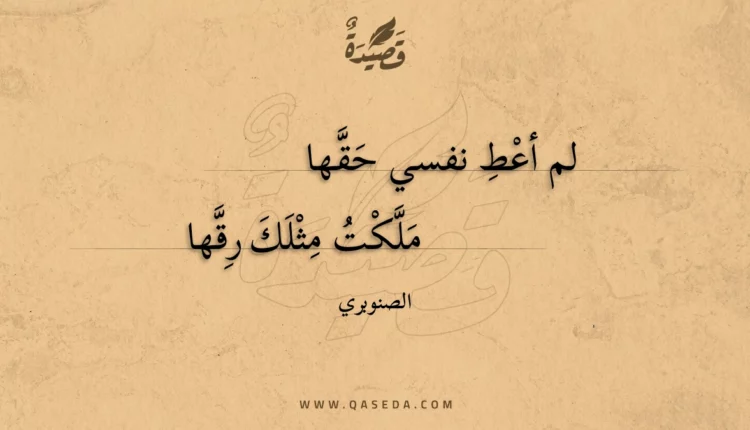 قَصِيْدَةٌ
لم أعْطِ نفسي حَقَّها
مَلَّكْتُ مِثْلَكَ رِقَّها
الصنوبري
WWW.QASEDA.COM